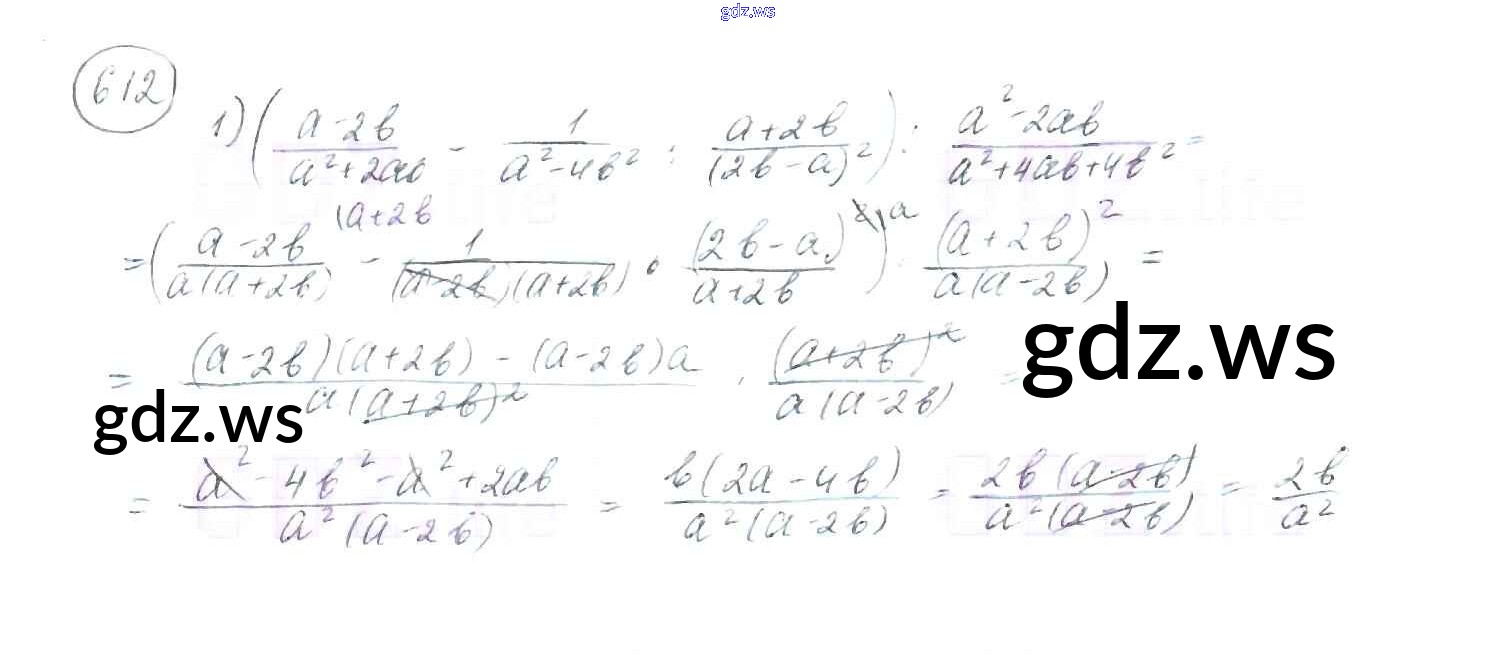 gdz.ws
612
1) ( (a-2b)/(a²+2ab) - 1/(a²-4b²) : (a+2b)/(2b-a)² ) : (a²-2ab)/(a²+4ab+4b²) =
= ( (a-2b)/(a(a+2b)) (a+2b - 1/((a-2b)(a+2b)) · (2b-a)²/(a+2b) \a ) · (a+2b)²/(a(a-2b)) =
= ((a-2b)(a+2b) - (a-2b)a)/(a(a+2b)²) · (a+2b)²/(a(a-2b)) =
gdz.ws
gdz.ws
= (a² - 4b² - a² + 2ab)/(a²(a-2b)) = b(2a-4b)/(a²(a-2b)) = 2b(a-2b)/(a²(a-2b)) = 2b/a²